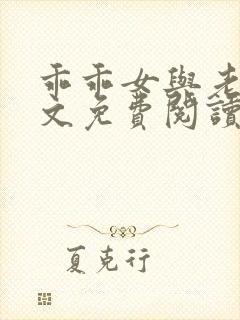 乖乖女與老
文免費閱讀
夏克行